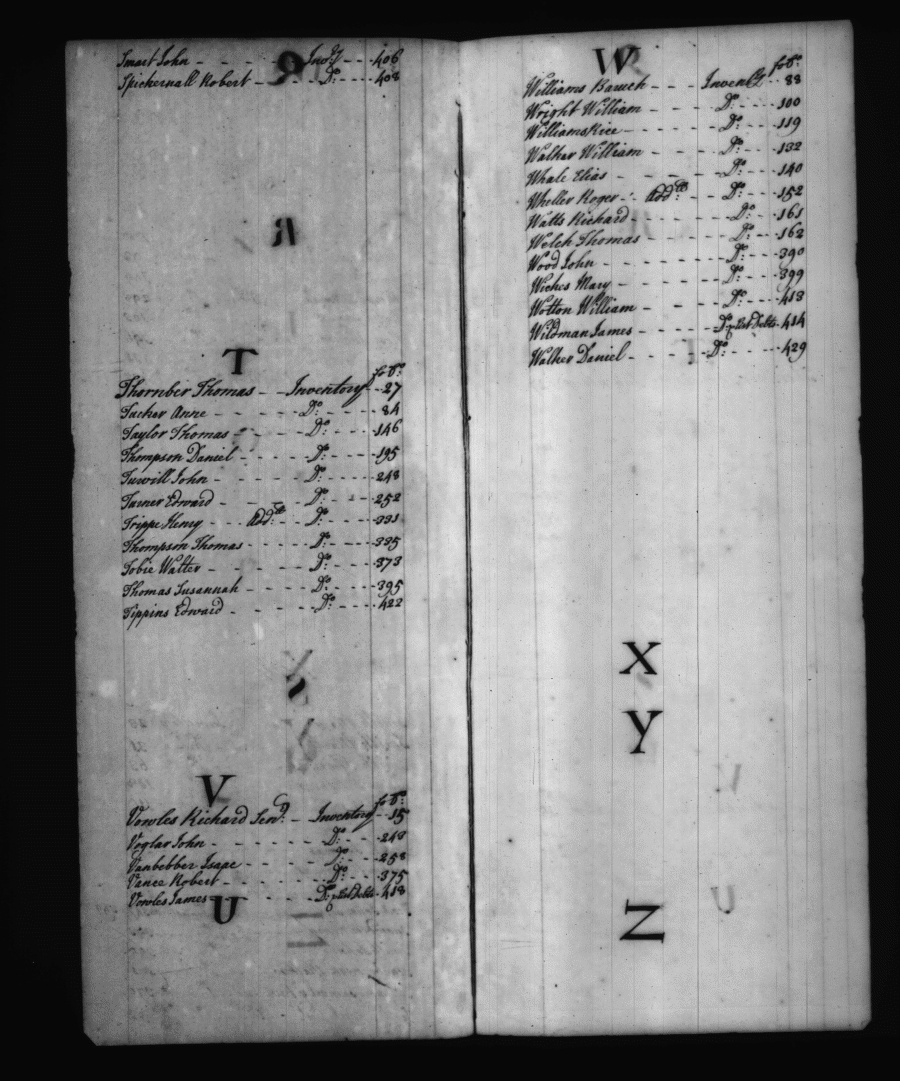 Smart John - - - - - Invy - - - 406
Spickernall Robert - - - Do: - - - 408
T
fo:
Thornber Thomas - - Inventory - - 27
Tucker Anne - - - - - Do: - - - - 84
Taylor Thomas - - - - Do: - - - - 146
Thompson Daniel - - - - Do: - - - - 195
Tuwill John - - - - - Do: - - - - 248
Turner Edward - - - - Do: - - - - 252
Trippe Henry - - - Addl: - Do: - - - - 331
Thompson Thomas - - - - Do: - - - - 335
Tobie Walter - - - - - Do: - - - - 373
Thomas Susannah - - - - Do: - - - - 395
Tippins Edward - - - - - Do: - - - - 422
V
fo:
Vowles Richard Senr: - - Inventory - 15
Voglar John - - - - - - Do: - - - 248
Vanbebber Isaac - - - - - Do: - - - 258
Vance Robert - - - - - - Do: - - - 375
Vowles James - - - - - Do: & List Debts - 418
U
W
fo:
Williams Baruch - - - Inventy - - 88
Wright William - - - - Do: - - - 100
Williams Rice - - - - - Do: - - - 119
Walker William - - - - Do: - - - 132
Whale Elias - - - - - Do: - - - 140
Wheller Roger - Addl: - - Do: - - - 152
Watts Richard - - - - - Do: - - - 161
Welch Thomas - - - - - Do: - - - 162
Wood John - - - - - - Do: - - - 390
Wiches Mary - - - - - Do: - - - 399
Wotton William - - - - Do: - - - 413
Wildman James - - - - Do: & List Debts - 414
Walker Daniel - - - - Do: - - - - 429
X
Y
Z